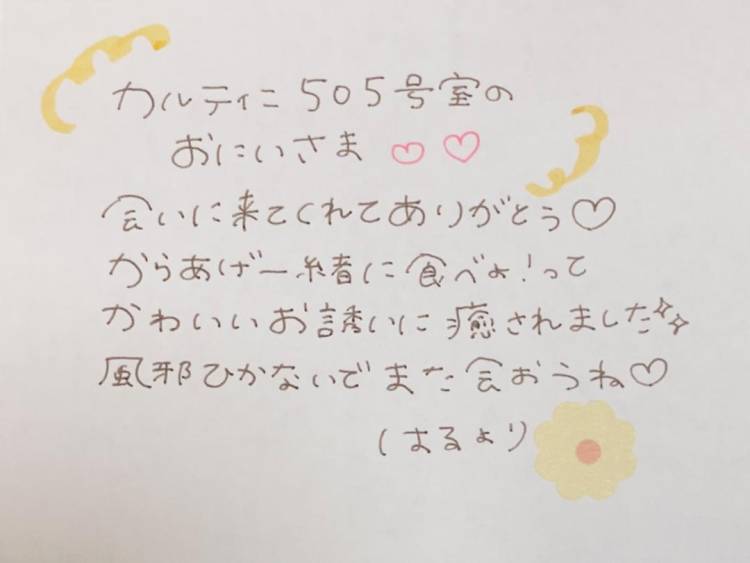 カルティニ505号室の
おにいさま♡♡
会いに来てくれてありがとう♡
からあげ一緒に食べよ!って
かわいいお誘いに癒されました✧✧
風邪ひかないでまた会おうね♡
はるより